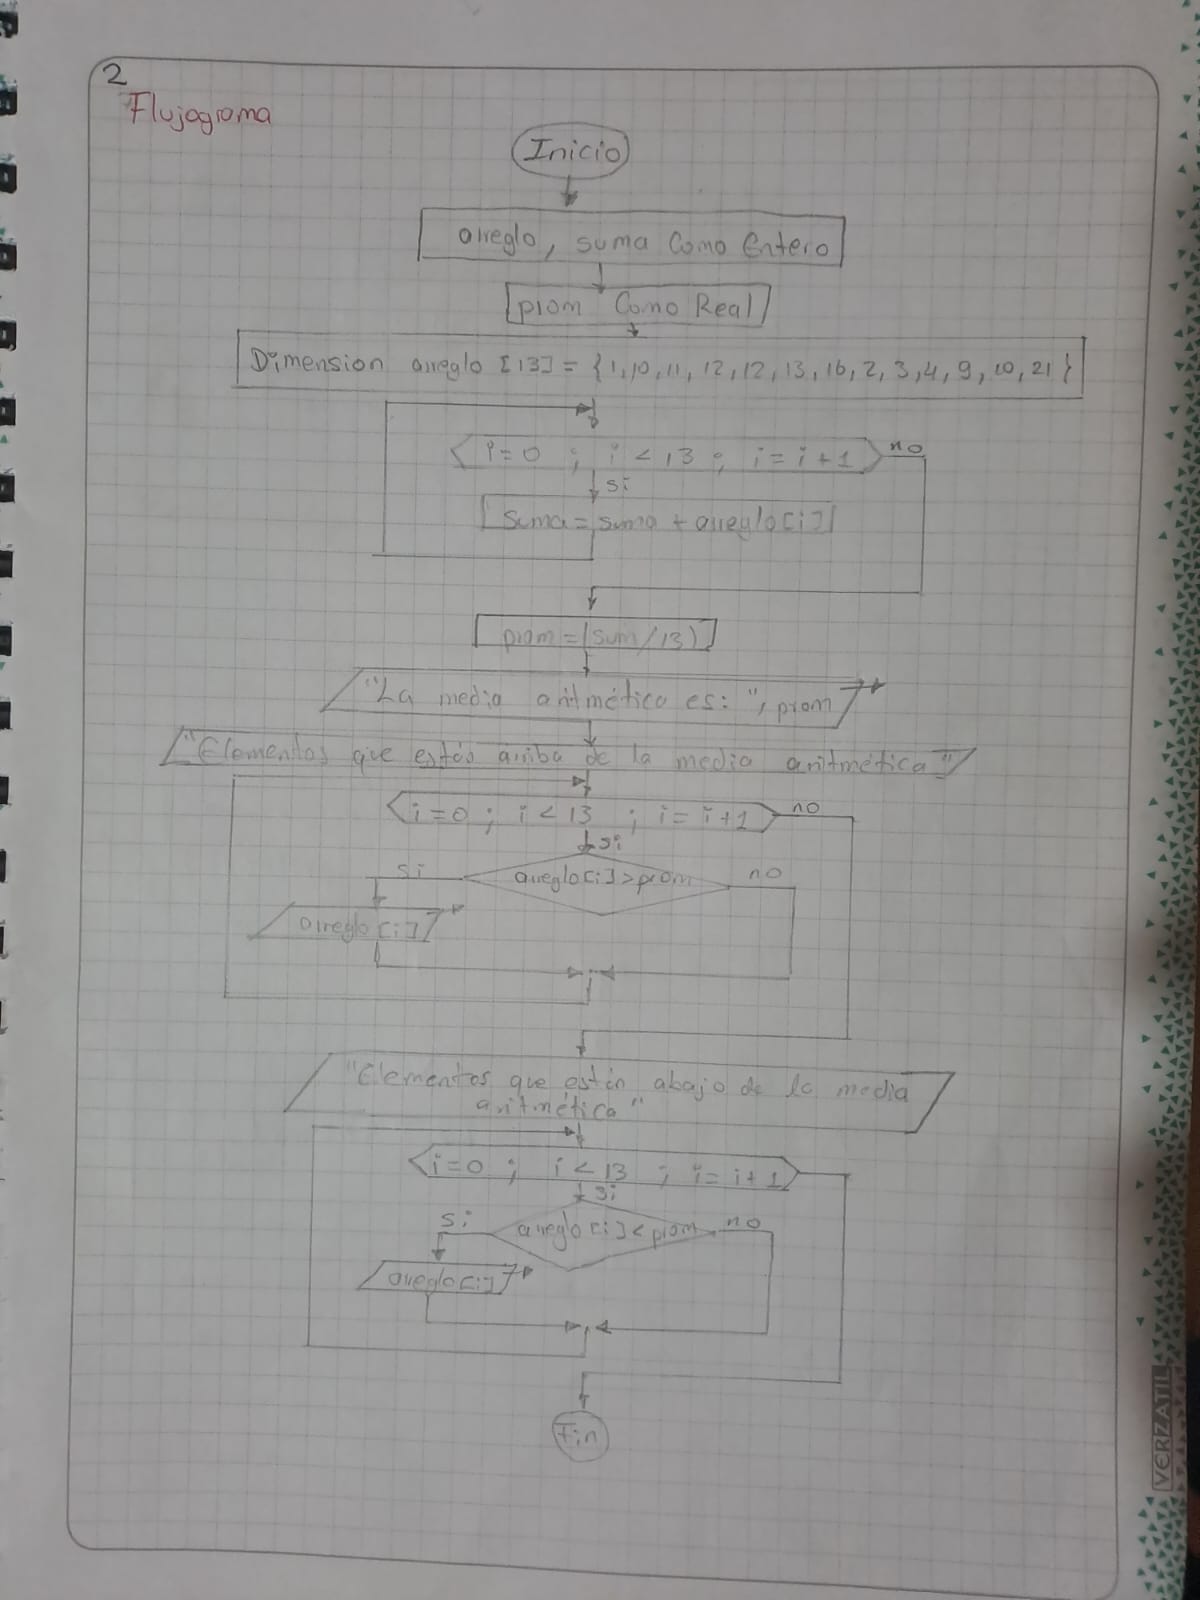 2
Flujograma
Inicio
arreglo, suma Como Entero
prom Como Real
Dimension arreglo [13] = {1,10,11,12,12,13,16,2,3,4,9,10,21}
i=0 ; i<13 ; i=i+1 no
si
suma = suma + arreglo[i]
prom = (sum/13)
"La media aritmética es: ", prom
"Elementos que estás arriba de la media aritmética"
i=0 ; i<13 ; i=i+1 no
si
si arreglo[i]>prom no
arreglo[i]
"Elementos que están abajo de la media
aritmética"
i=0 ; i<13 ; i=i+1
si
si arreglo[i]<prom no
arreglo[i]
Fin
VERZATIL